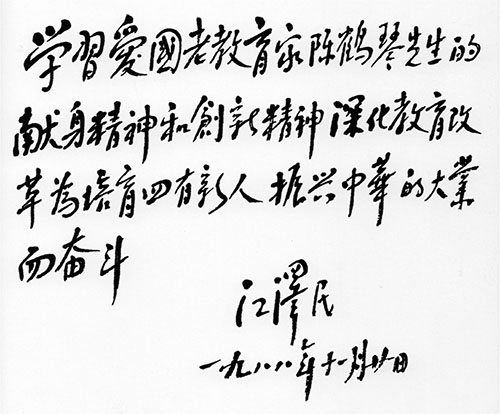 学習爱國老教育家陈鹤琴先生的
献身精神和創新精神深化教育改
革为培育四有新人振兴中華的大業
而奋斗
江澤民
一九八八年十一月廿日